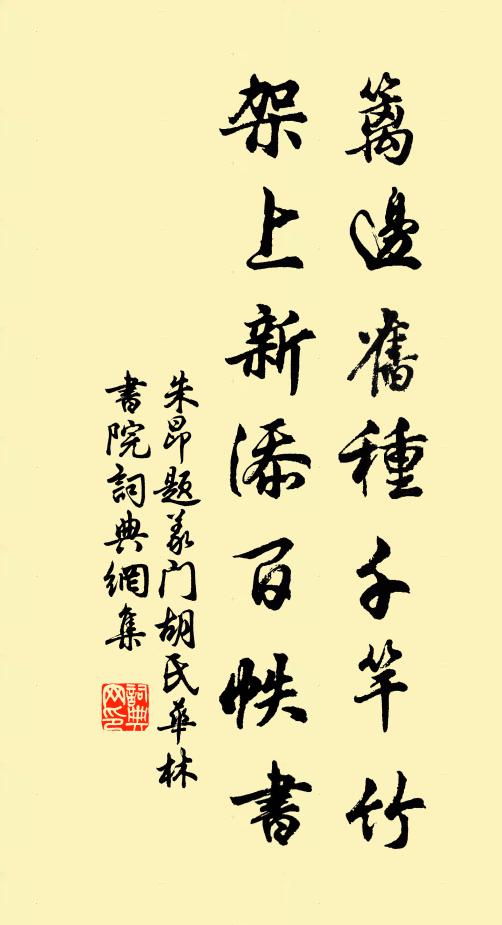 籬邊舊種千竿竹
架上新添百帙書
朱昂題義门胡氏華林
書院詞典網集
詞典网印